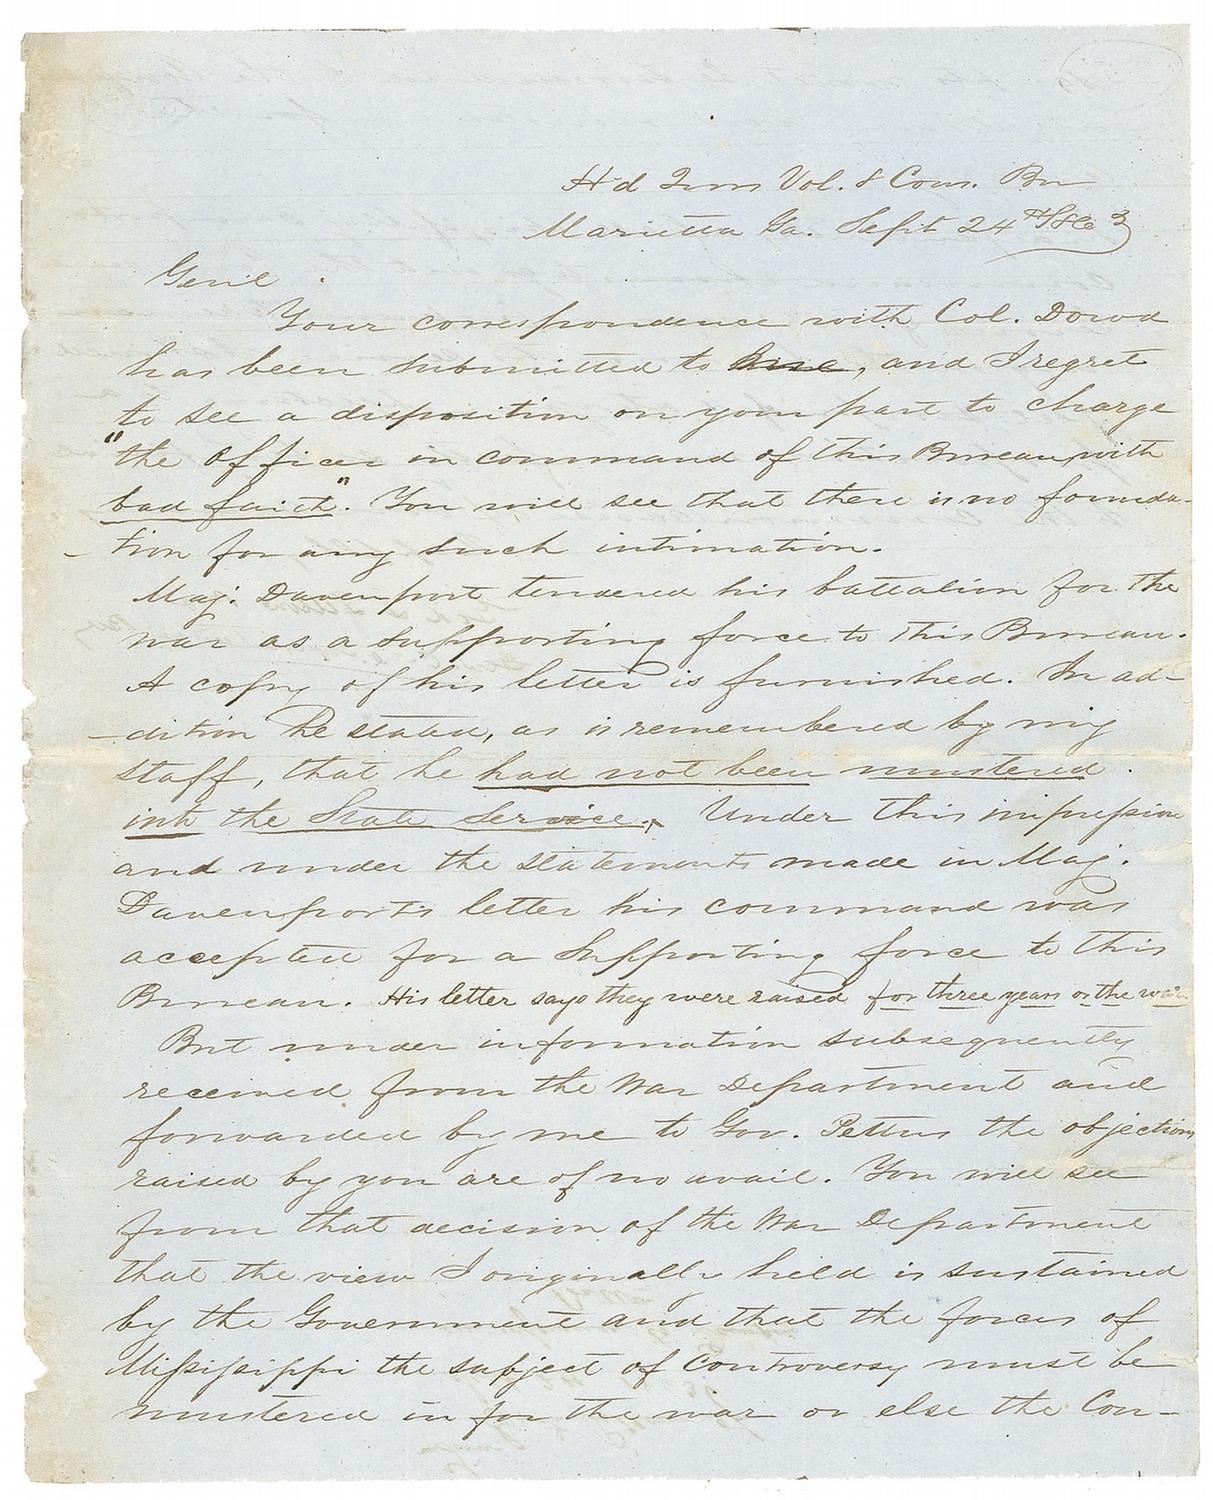 Hd Qrs Vol. & Cons. Bu
Marietta Ga. Sept 24th 1863
Genl
Your correspondence with Col. Dowd
has been submitted to me, and I regret
to see a disposition on your part to charge
"the officer in command of this Bureau with
bad faith". You will see that there is no founda-
-tion for any such intimation.
Maj. Davenport tendered his battalion for the
war as a supporting force to this Bureau.
A copy of his letter is furnished. In ad-
-dition he stated, as is remembered by my
staff, that he had not been mustered
into the State service. Under this impression
and under the statements made in Maj.
Davenport's letter his command was
accepted for a supporting force to this
Bureau. His letter says they were raised for three years or the war.
But under information subsequently
received from the War Department and
forwarded by me to Gov. Pettus the objections
raised by you are of no avail. You will see
from that decision of the War Department
that the view I originally held is sustained
by the Government and that the forces of
Mississippi the subject of controversy must be
mustered in for the war or else the Con-